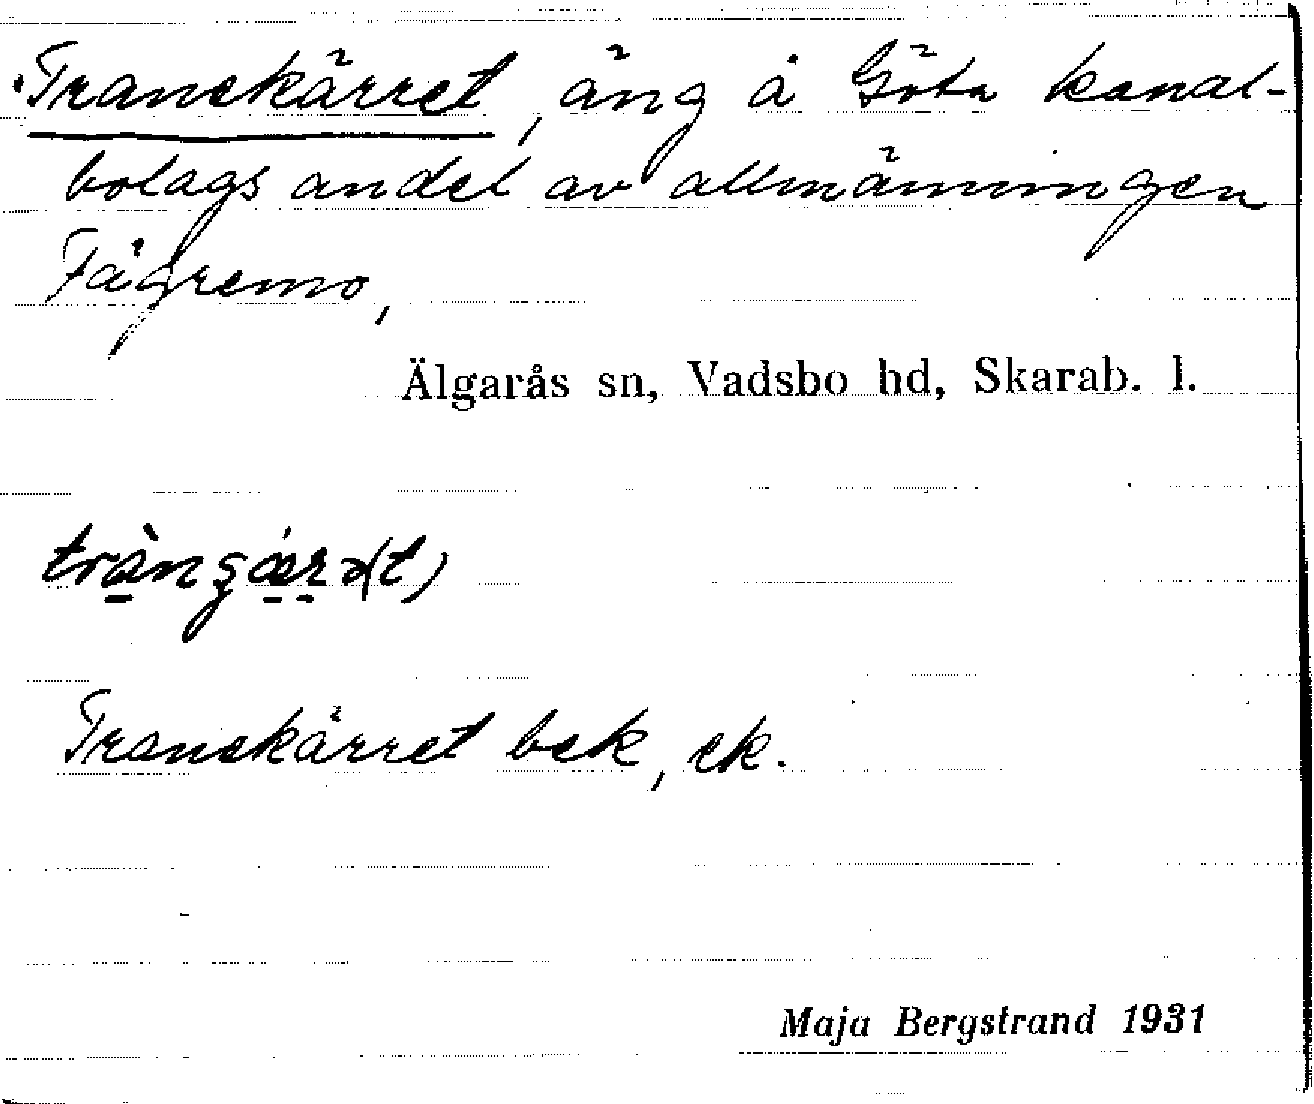 Tranekärret, äng å Göta kanal-
bolags andel av allmänningen
Fägremo,
Älgarås sn, Vadsbo hd, Skarab. l.
Tranekärret bek, ek.
Maja Bergstrand 1931